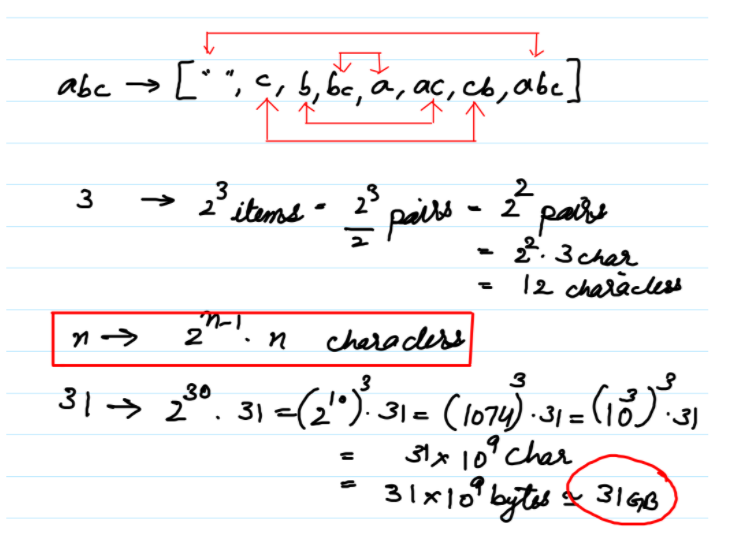 abc → [" ", c, b, bc, a, ac, cb, abc]
3 → 2³ items = 2³/2 pairs = 2² pairs
= 2² · 3 char
= 12 characters
n → 2ⁿ⁻¹ · n characters
31 → 2³⁰ · 31 = (2¹⁰)³ · 31 = (1074)³ · 31 = (10³)³ · 31
= 31 × 10⁹ char
= 31 × 10⁹ bytes ≃ 31 GB